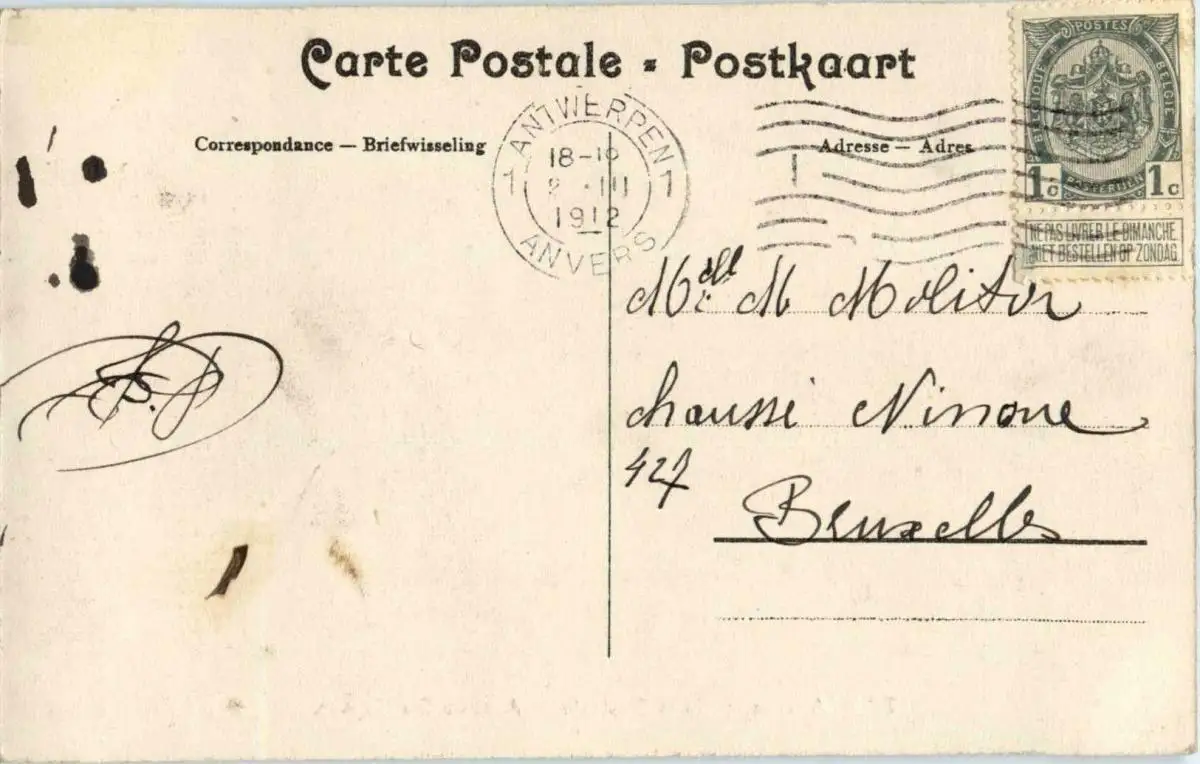 Carte Postale - Postkaart
Correspondance — Briefwisseling
Adresse — Adres
ANTWERPEN
1 1
18-19
III
1912
ANVERS
POSTES
BELGIQUE BELGIË
POSTERIJEN
1c 1c
NE PAS LIVRER LE DIMANCHE
NIET BESTELLEN OP ZONDAG
Melle M Molitor
chaussé Ninove
427
Bruxelles